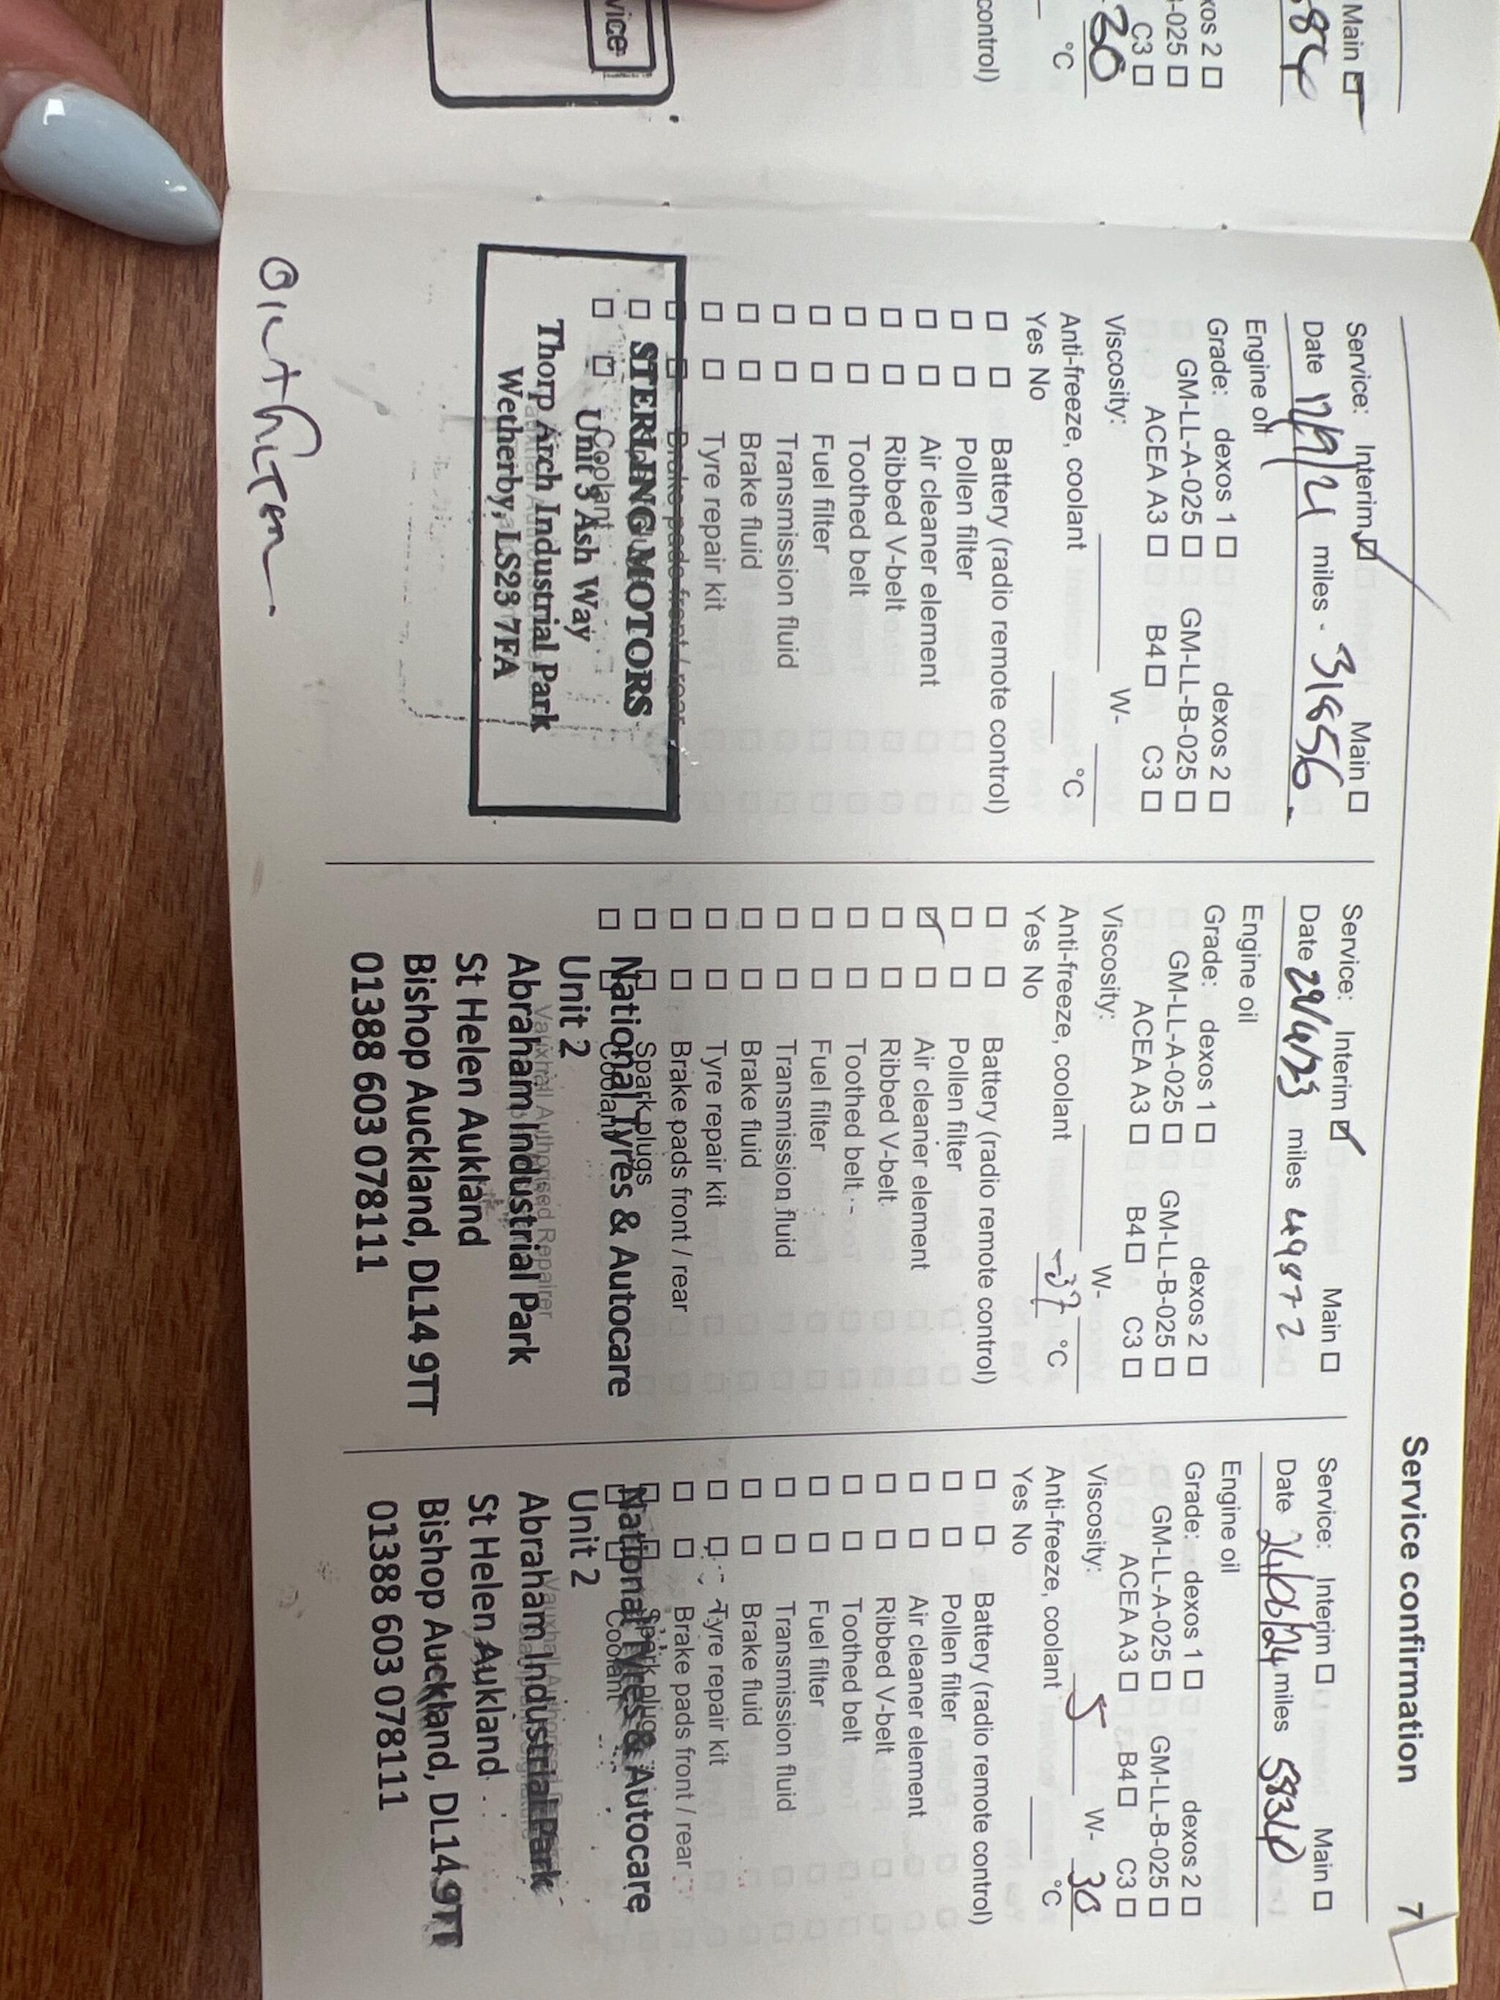 Main
864
xos 2
-025
C3
30
°C
control)
vice
Service confirmation 7
Service: Interim Main
Date 17/9/21 miles 31856
Engine oil
Grade: dexos 1 dexos 2
GM-LL-A-025 GM-LL-B-025
ACEA A3 B4 C3
Viscosity: W-
Anti-freeze, coolant °C
Yes No
Battery (radio remote control)
Pollen filter
Air cleaner element
Ribbed V-belt
Toothed belt
Fuel filter
Transmission fluid
Brake fluid
Tyre repair kit
Brake pads front / rear
Coolant
STERLING MOTORS
Unit 3 Ash Way
Thorp Arch Industrial Park
Wetherby, LS23 7FA
Oil & Filter
Service: Interim Main
Date 29/4/23 miles 49872
Engine oil
Grade: dexos 1 dexos 2
GM-LL-A-025 GM-LL-B-025
ACEA A3 B4 C3
Viscosity: W-
Anti-freeze, coolant -37 °C
Yes No
Battery (radio remote control)
Pollen filter
Air cleaner element
Ribbed V-belt
Toothed belt
Fuel filter
Transmission fluid
Brake fluid
Tyre repair kit
Brake pads front / rear
Spark plugs
Coolant
Vauxhall Authorised Repairer
National Tyres & Autocare
Unit 2
Abraham Industrial Park
St Helen Aukland
Bishop Auckland, DL14 9TT
01388 603 078111
Service: Interim Main
Date 26/06/24 miles 58340
Engine oil
Grade: dexos 1 dexos 2
GM-LL-A-025 GM-LL-B-025
ACEA A3 B4 C3
Viscosity: 5 W- 30
Anti-freeze, coolant °C
Yes No
Battery (radio remote control)
Pollen filter
Air cleaner element
Ribbed V-belt
Toothed belt
Fuel filter
Transmission fluid
Brake fluid
Tyre repair kit
Brake pads front / rear
Spark plugs
Coolant
National Tyres & Autocare
Unit 2
Abraham Industrial Park
St Helen Aukland
Bishop Auckland, DL14 9TT
01388 603 078111